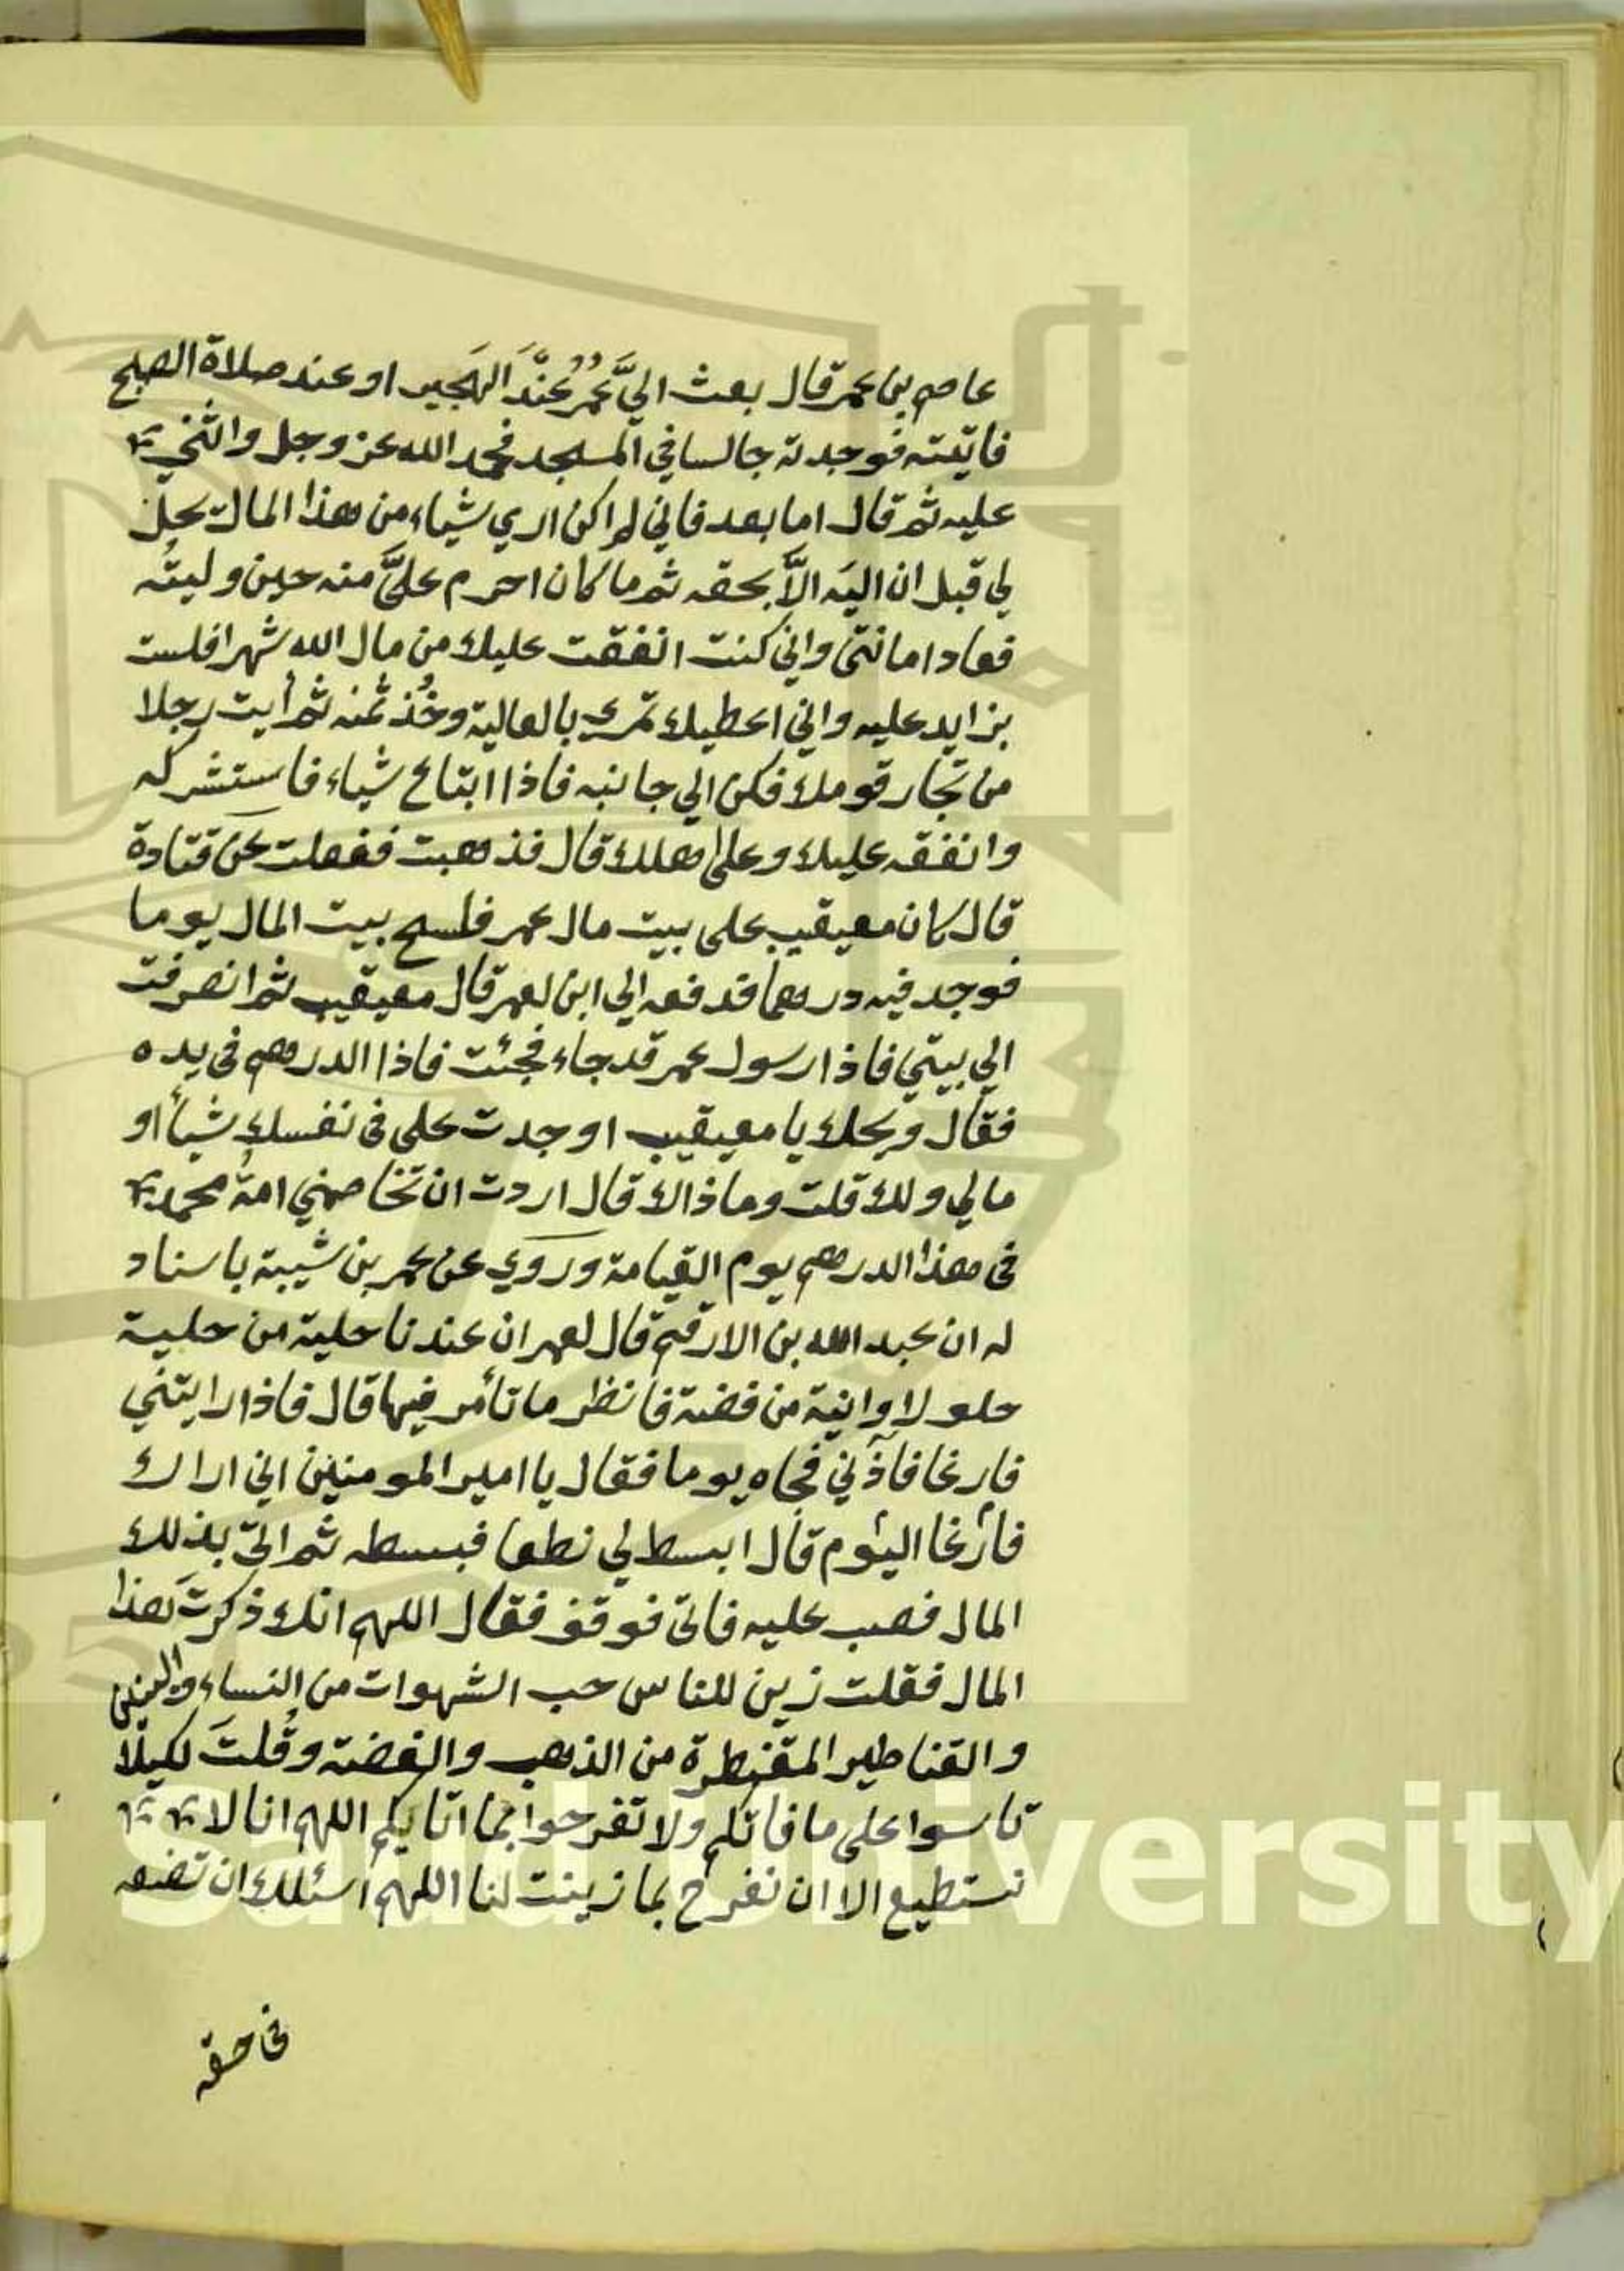 عاصم بن عمر قال بعث اليَّ عُمرُ عِنَدَ الهَجير او عند صلاة الصبح
فاتيته فوجدته جالسا في المسجد فحمد الله عز وجل واثني
عليه ثم قال اما بعد فاني لم اكن اري شياء من هذا المال يحل
لي قبل ان اليَه الاَّ بحقه ثم ما كان احرم عليَّ منه حين وليتُه
فعاد امانتى واني كنت انفقت عليك من مال الله شهرا فلست
بزايد عليه واني اعطيك تمرى بالعالية وخُذ ثمنه ثم أيت رجلا
من تجار قومك فكن الي جانبه فاذا ابتاع شياء فاستشركه
وانفقه عليك وعلى اهلك قال فذهبت ففعلت عن قتادة
قال كان معيقيب على بيت مال عمر فلسح بيت المال يوما
فوجد فيه درهما فدفعه الي ابن لعمر قال معيقيب ثم انصرفت
الي بيتي فاذا رسول عمر قد جاء فجئت فاذا الدرهم فى يده
فقال ويحك يا معيقيب اوجدت على فى نفسك شيأ او
مالي ولك قلت وما ذاك قال اردت ان تخاصمني امةُ محمد
فى هذا الدرهم يوم القيامة وروي عن عمر بن شيبة باسناد
له ان عبد الله بن الارقم قال لعمر ان عندنا حلية من حلية
حلولا وانية من فضة فانظر ما تأمر فيها قال فاذا رايتني
فارغا فاذّني فجاه يوما فقال يا امير المومنين اني اراك
فارغا اليوم قال ابسط لي نطعا فبسطه ثم اتيّ بذلك
المال فصب عليه فاتى فوقف فقال اللهم انك ذكرتَ هذا
المال فقلت زين للناس حب الشهوات من النساء والبنين
والقناطير المقنطرة من الذهب والفضة وقُلتَ لكيلا
تاسوا على ما فاتكم ولا تفرحوا بما اتايكم اللهم انا لا
نستطيع الا ان نفرح بما زينت لنا اللهم اسئلك ان تضعه
في حقه
g Saud University